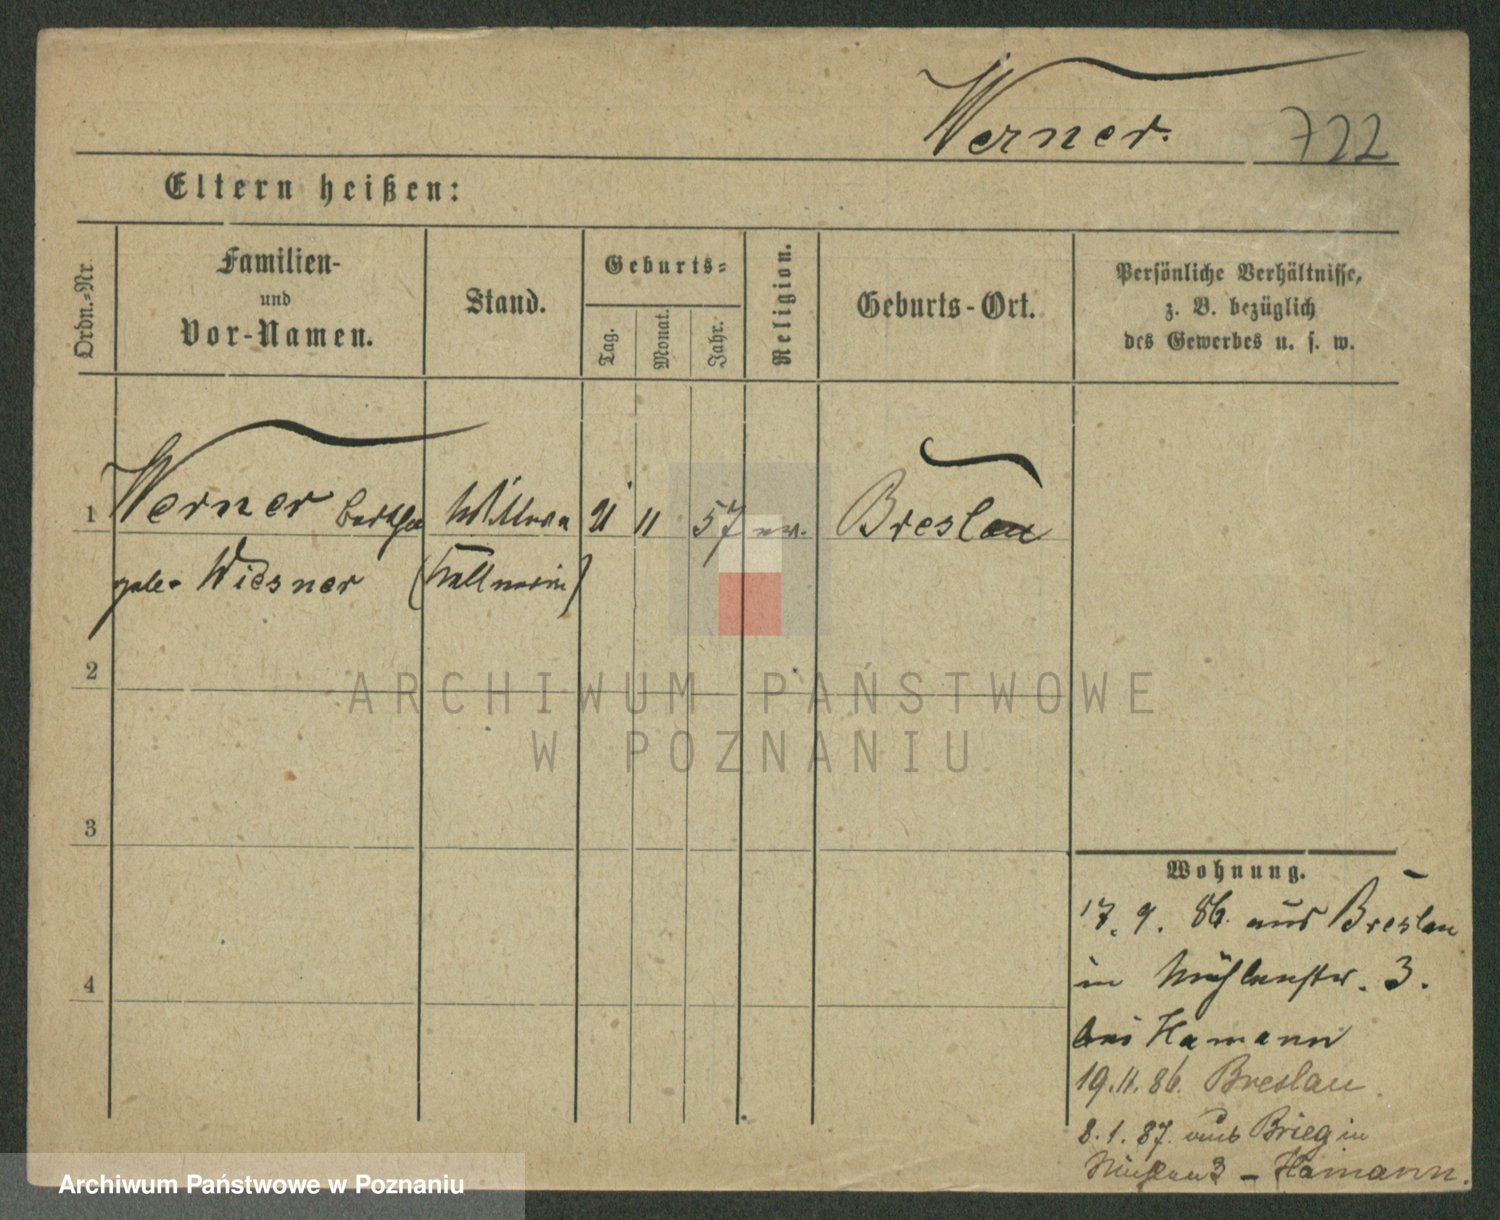 Werner.
722
Eltern heißen:
Ordn.-Nr.
Familien-
und
Vor-Namen.
Stand.
Geburts-
Tag.
Monat.
Jahr.
Religion.
Geburts-Ort.
Persönliche Verhältnisse,
z. B. bezüglich
des Gewerbes u. s. w.
1 Werner Bertha Wittwe 21 11 57 ev. Breslau
geb. Wiesner
2
3
4
Wohnung.
17. 9. 86. aus Breslau
in Mühlenstr. 3.
bei Hamann
19. 11. 86. Breslau
8. 1. 87. aus Brieg in
Mühlen 3 - Hamann.
ARCHIWUM PAŃSTWOWE
W POZNANIU
Archiwum Państwowe w Poznaniu